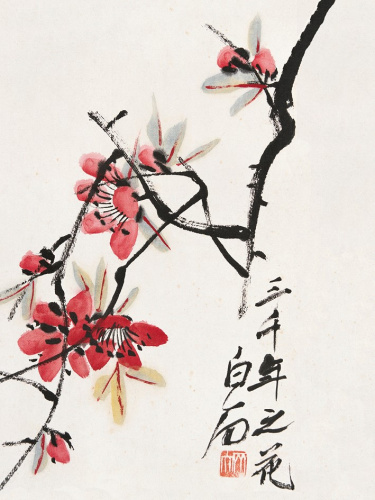 三千年之花
白石